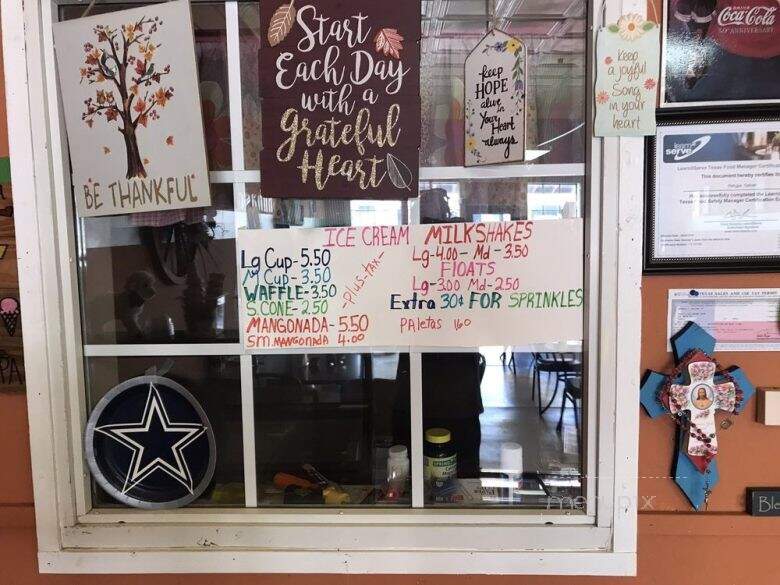 BE THANKFUL
Start
Each Day
with a
grateful
Heart
keep
HOPE
alive in
Your Heart
always
Keep
a joyful
Song
in your
heart
Coca-Cola
50TH ANNIVERSARY
learn2
serve
This document hereby certifies
TEXAS SALES AND USE TAX PERMIT
ICE CREAM
Lg Cup-5.50
M Cup-3.50
WAFFLE-3.50
S.CONE-2.50
MANGONADA-5.50
Sm.MANGONADA 4.00
-Plus-tax-
MILKSHAKES
Lg-4.00- Md-3.50
FlOATS
Lg-3.00 Md-2.50
Extra 30¢ FOR SPRINKLES
PAletas 1.60
PA
Ble
menupix